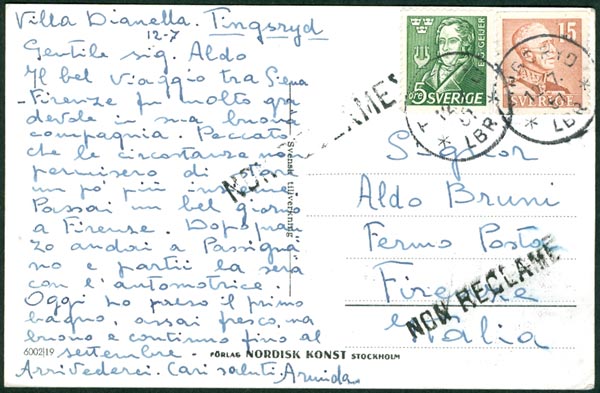 Villa Dianella. Tingsryd
12-7
Gentile sig. Aldo
Il bel viaggio tra Siena
-Firenze fu molto gra
devole in sua buona
compagnia. Peccato
che le circostanze non
permisero di stare
un po' più insieme.
Passai un bel giorno
a Firenze. Dopo pran
zo andai a Passigna
no e partii la sera
con l'automotrice.
Oggi ho preso il primo
bagno, assai fresco, ma
buono e continuo fino al
settembre.
Arrivederci. Cari saluti Armida
6002|19
Svensk tillverkning
FÖRLAG NORDISK KONST STOCKHOLM
E.G. GEIJER
5 ÖRE SVERIGE
15
SVERIGE
TINGSRYD
LBR
TINGSRYD
LBR
NON RECLAME
NON RECLAME
Signor
Aldo Bruni
Fermo Posta
Firenze
Italia